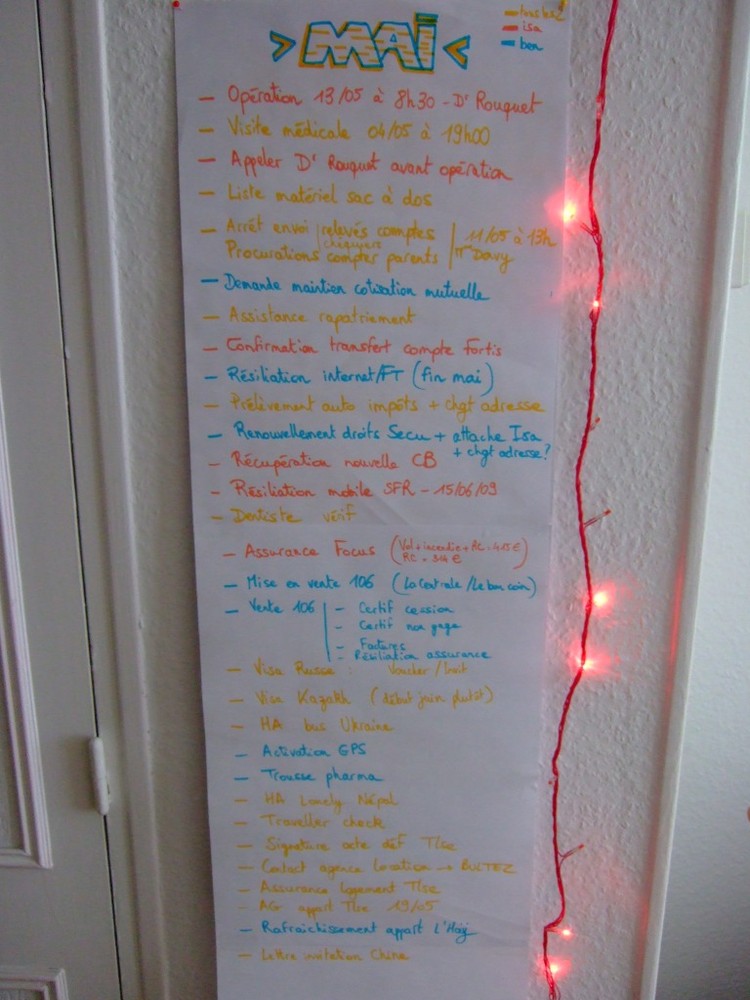 > MAI <
tous les 2
isa
ben
— Opération 13/05 à 8h30 - Dr Rouquet
— Visite médicale 04/05 à 19h00
— Appeler Dr Rouquet avant opération
— Liste matériel sac à dos
— Arrêt envoi relevés comptes 11/05 à 13h
chéquiers
Procurations comptes parents Mme Davy
— Demande maintien cotisation mutuelle
— Assistance rapatriement
— Confirmation transfert compte Fortis
— Résiliation internet/FT (fin mai)
— Prélèvement auto impôts + chgt adresse
— Renouvellement droits Secu + attache Isa
+ chgt adresse?
— Récupération nouvelle CB
— Résiliation mobile SFR - 15/06/09
— Dentiste vérif
— Assurance Focus (Vol + incendie + RC : 415 €
RC = 344 €)
— Mise en vente 106 (La Centrale / Le bon coin)
— Vente 106 - Certif cession
- Certif non gage
- Factures
- Résiliation assurance
— Visa Russe : Voucher / Invit
— Visa Kazakh (début juin plutôt)
— HA bus Ukraine
— Activation GPS
— Trousse pharma
— HA Lonely Népal
— Traveller check
— Signature acte déf Tlse
— Contact agence location → BULTEZ
— Assurance logement Tlse
— AG appart Tlse 19/05
— Rafraichissement appart L'Haÿ
— Lettre invitation Chine